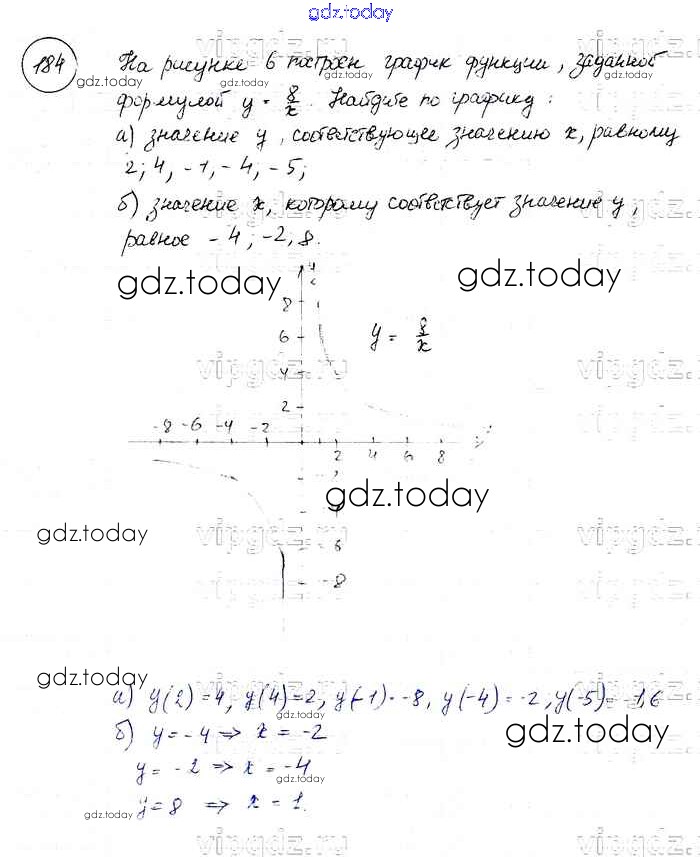 gdz.today
184 На рисунке 6 построен график функции, заданной
формулой y = 8/x. Найдите по графику:
а) значение y, соответствующее значению x, равному
2; 4, -1, -4, -5;
б) значение x, которому соответствует значение y,
равное -4; -2, 8.
gdz.today gdz.today
y
8
6 y = 8/x
4
2
-8 -6 -4 -2
2 4 6 8
gdz.today
gdz.today
- 6
- 8
gdz.today
а) y(2) = 4, y(4) = 2, y(-1) = -8, y(-4) = -2, y(-5) = -1,6
б) y = -4 ⇒ x = -2
gdz.today
y = -2 ⇒ x = -4
y = 8 ⇒ x = 1.